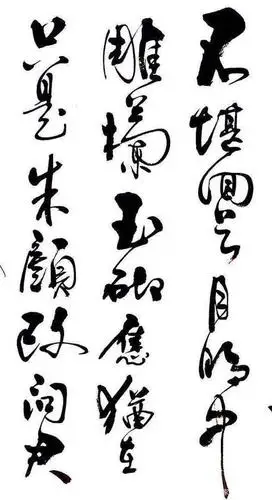 不堪回首月明中
雕欄玉砌應猶在
只是朱顏改問君